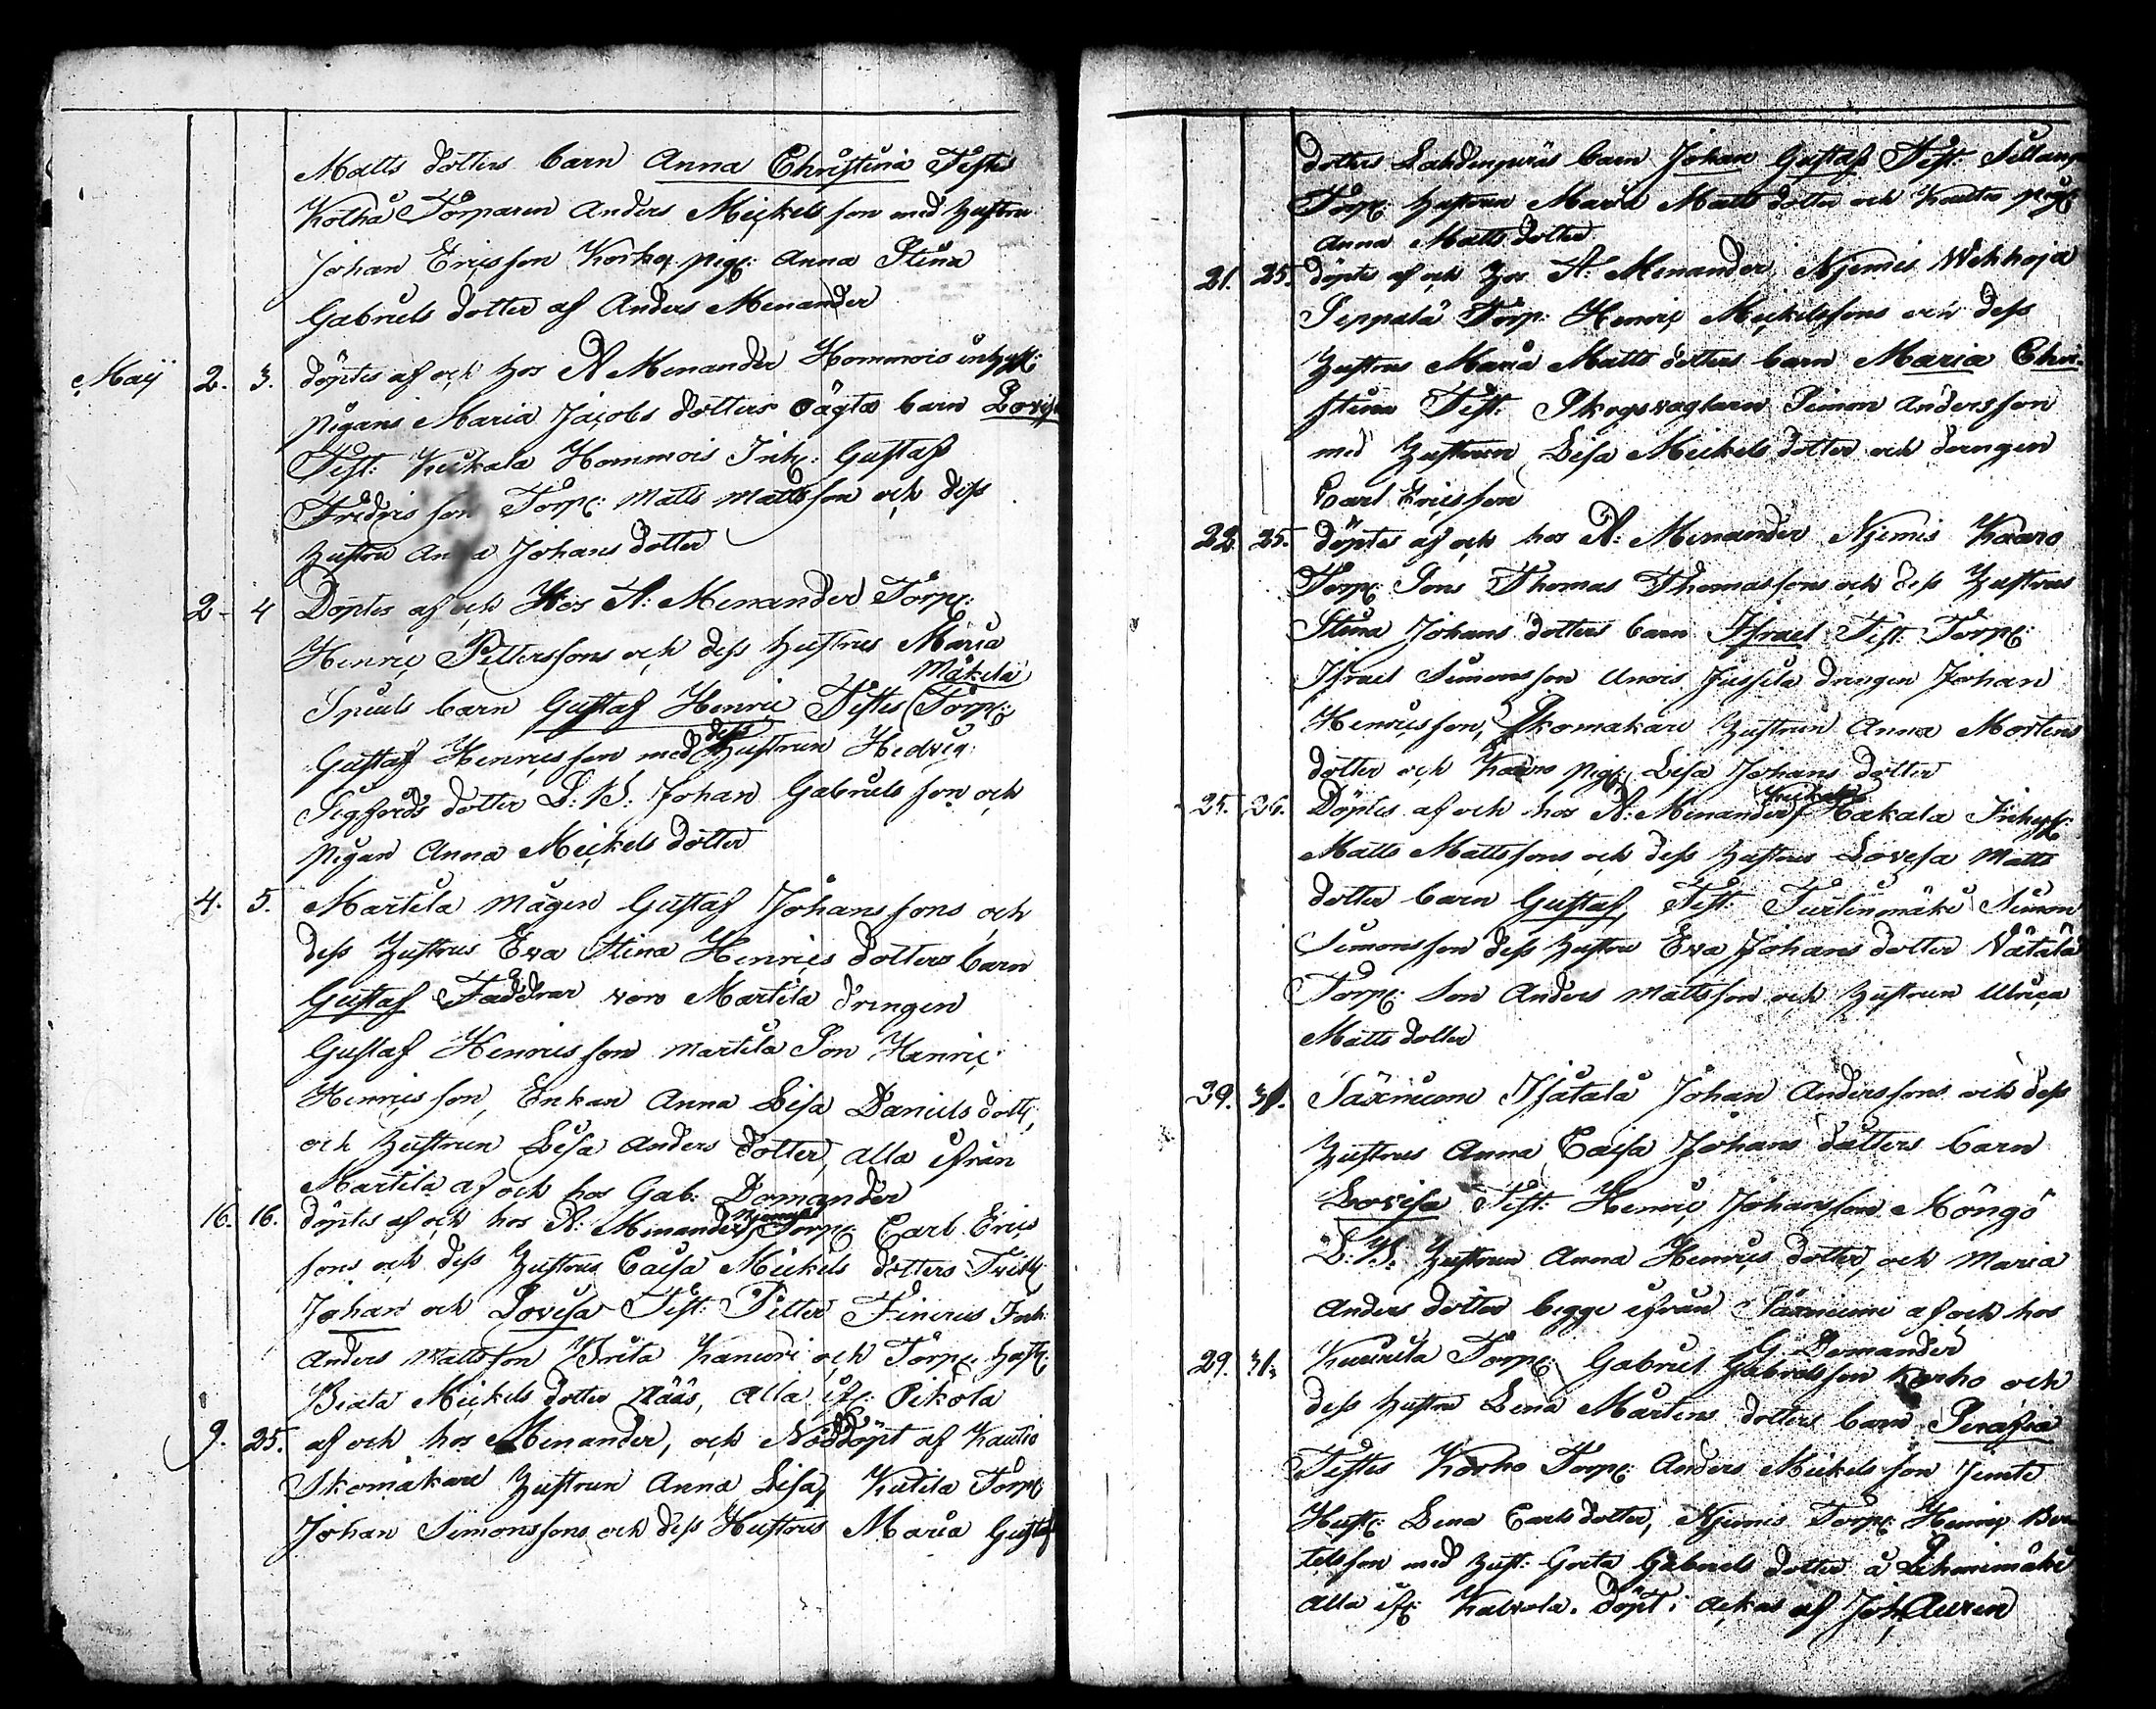 Matts dotters barn Anna Christina Testes
Kolha Torparen Anders Mickels son med hustru
Johan Ericsson Korho pig: Anna Stina
Gabriels dotter af Anders Menander
Maij 2. 3. döptes af och hos A Menander Hommois inhys:
pigans Maria Jacobs dotters oägta barn Lovisa
Test: Kuckala Hommois Inh: Gustaf
Fredrics son Torp: Matts Mattsson och dess
hustru Anna Johans dotter
2- 4 Döptes af och Hos A: Menander Torp:
Henric Pettersons och dess hustrus Maria
Mäkelä
barn Gustaf Henric Testes Torp:
dess
Gustaf Henricsson med hustrun Hedvig
Sigfrids dotter D: B: Johan Gabriels son och
pigan Anna Mickels dotter
4. 5. Martila mågen Gustaf Johans sons och
dess hustrus Eva Stina Henrics dotters barn
Gustaf Faddrar voro Martila drengen
Gustaf Henrics son Martila Son Henric
Henrics son, Enkan Anna Lisa Daniels dott:
och hustrun Lisa Anders dotter, alla ifrån
Martila af och hos Gab: Domander
16. 16. döptes af och hos A: Menander Torp: Carl Erics
sons och dess hustrus Caisa Mickels dotters Trill:
Johan och Lovisa Test: Petter Finerus Inh:
Anders Mattsson Brita och Torp: hust:
Beata Mickels dotter Ääs, alla ifr: Oikola
9. 25. af och hos Menander, och Nöddöpt af Kautio
Skomakare hustrun Anna Lisa, Kutila Torp:
Johan Simonssons och dess Hustrus Maria Gustaf
dotters barn Johan Gustaf Test:
Torp: hustrun Maria Matts dotter och Kautio pig:
Anna Matts dotter
21. 25. döptes af och hos A: Menander Njemis Wekkoja
Seppälä Torp: Henric Mickelssons och dess
hustrus Maria Matts dotters barn Maria Chri-
stina Test: Skogsvagtarn Simon Andersson
med hustrun Lisa Mickels dotter och drengen
Carl Ericsson
22. 25. döptes af och hos A: Menander Njemis Kaaro
Torp: Sons Thomas Thomassons och dess hustrus
Stina Johans dotters barn Israel Test: Torp:
Israel Simonsson Jussila drengen Johan
Henricsson, Skomakare hustrun Anna Mortens
dotter och Kaaro pig: Lisa Johans dotter
Kuckala
25. 26. Döptes af och hos A: Menander Hakala Inhys:
Matts Mattssons och dess hustrus Lovisa Matts
dotter barn Gustaf, Test: Simon
Simonsson dess hustru Eva Johans dotter Nätälä
Torp: Son Anders Mattsson och hustrun Ulrica
Matts dotter
29. 31. Säxniemi Isotalo Johan Anderssons och dess
hustrus Anna Caisa Johans dotters barn
Lovisa Test: Henric Johansson Möngö
D: B: hustrun Anna Henrics dotter, och Maria
Anders dotter begge ifrån Säxniemi af och hos
G. Domander
29. 31. Torp: Gabriel Gabrielsson Korho och
dess hustru Lena Mårtens dotters barn Serafia
Testes Korho Torp: Anders Mickels son jemte
Hust: Lena Carls dotter, Njemis Torp: Henric Ber
telsson med hust: Greta Gabriels dotter å
alla ifr: Kalvola. Döpt i Ackas af Joh: Auren